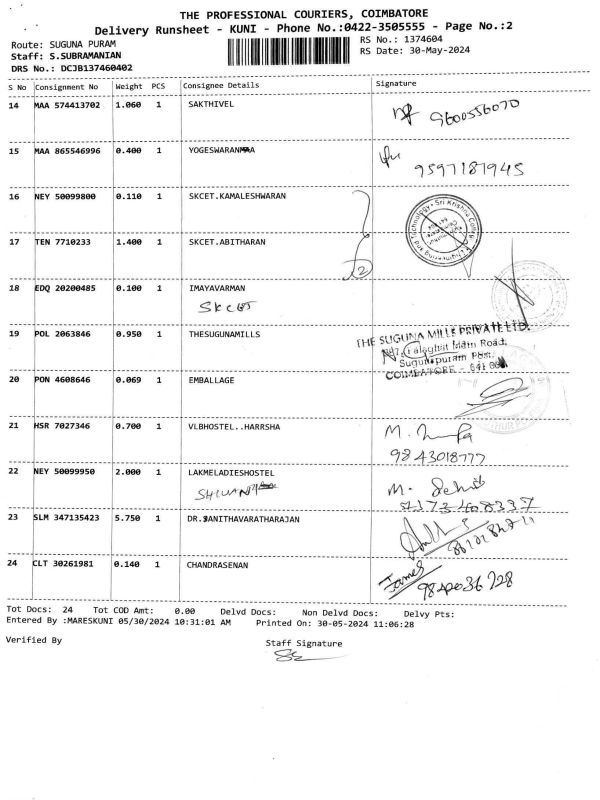 THE PROFESSIONAL COURIERS, COIMBATORE
Delivery Runsheet - KUNI - Phone No.:0422-3505555 - Page No.:2
Route: SUGUNA PURAM
RS No.: 1374604
Staff: S.SUBRAMANIAN
RS Date: 30-May-2024
DRS No.: DCJB137460402
S No Consignment No Weight PCS Consignee Details Signature
14 MAA 574413702 1.060 1 SAKTHIVEL
9600556070
15 MAA 865546996 0.400 1 YOGESWARAN
9597187945
16 NEY 50099800 0.110 1 SKCET.KAMALESHWARAN
17 TEN 7710233 1.400 1 SKCET.ABITHARAN
2
18 EDQ 20200485 0.100 1 IMAYAVARMAN
SKCET
19 POL 2063846 0.950 1 THESUGUNAMILLS
THE SUGUNA MILLS PRIVATE LTD.
Palaghat Main Road,
Sugunapuram Post,
COIMBATORE - 641 008
20 PON 4608646 0.069 1 EMBALLAGE
21 HSR 7027346 0.700 1 VLBHOSTEL..HARRSHA
M.
9843018777
22 NEY 50099950 2.000 1 LAKMELADIESHOSTEL
M.
SHIVANI
7173408337
23 SLM 347135423 5.750 1 DR.SANITHAVARATHARAJAN
24 CLT 30261981 0.140 1 CHANDRASENAN
James
9842036728
Tot Docs: 24 Tot COD Amt: 0.00 Delvd Docs: Non Delvd Docs: Delvy Pts:
Entered By :MARESKUNI 05/30/2024 10:31:01 AM Printed On: 30-05-2024 11:06:28
Verified By
Staff Signature